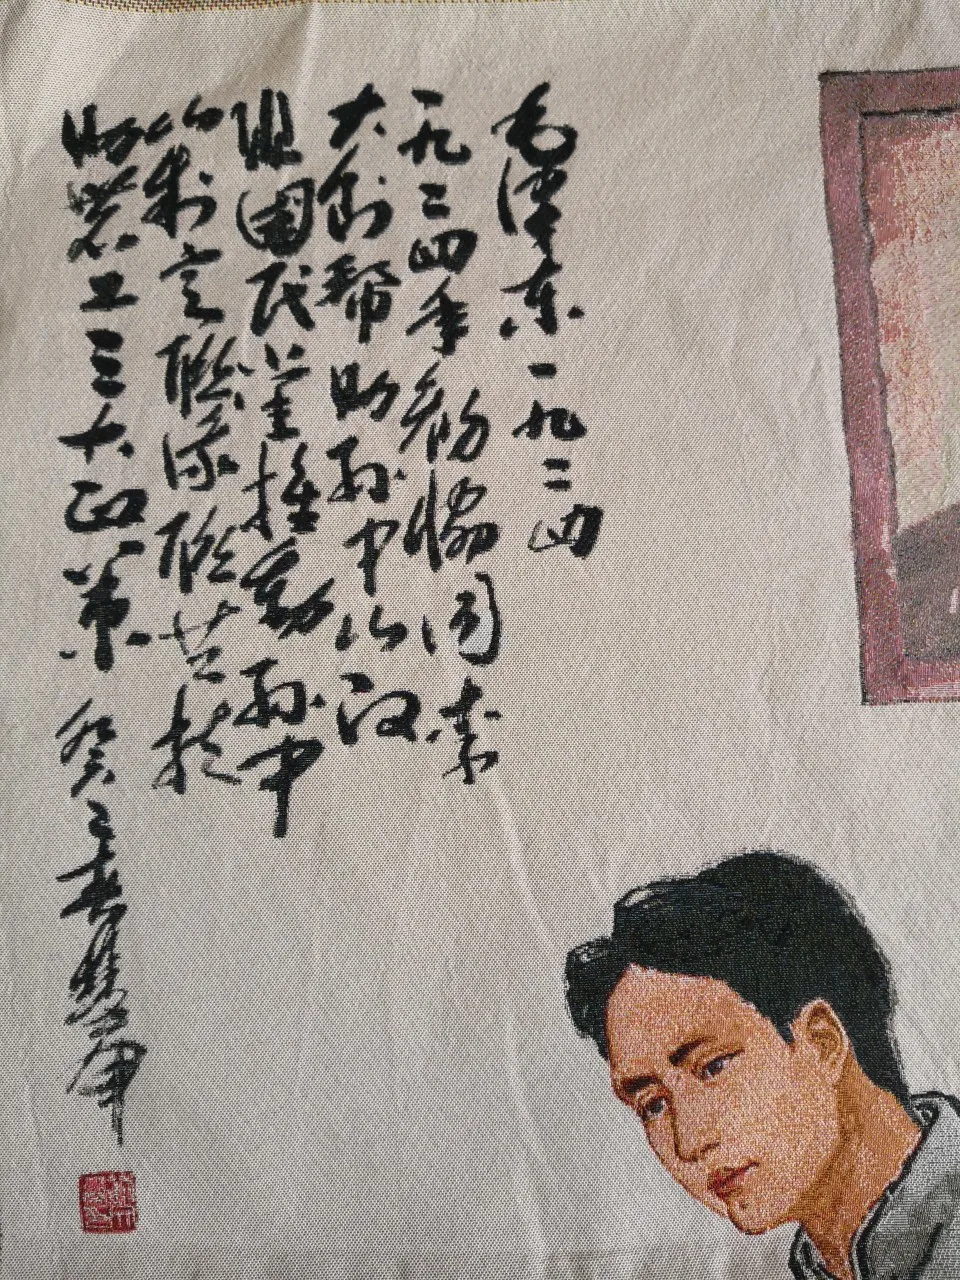 毛泽东一九二四
一九二四年协同李
大钊帮助孙中山改
组國民党推動孙中
山制定聯俄联共扶
助农工三大政策 癸 春